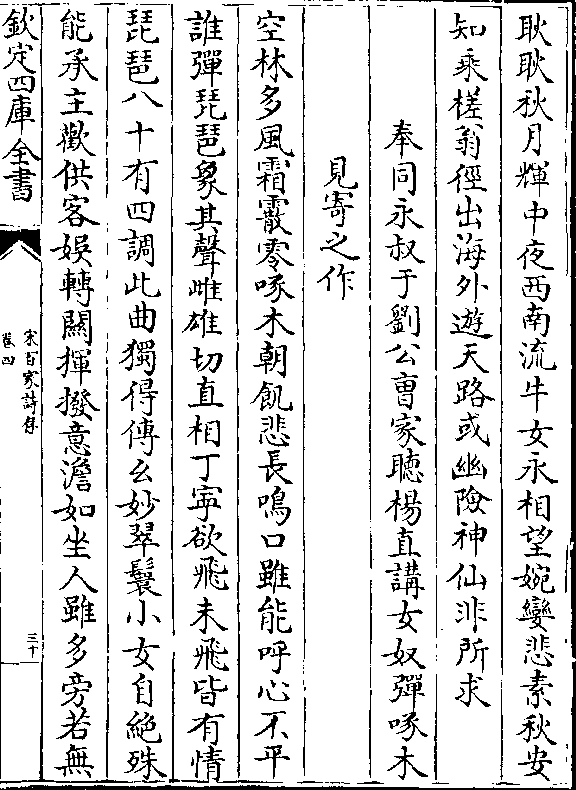 耿耿秋月輝中夜西南流牛女永相望婉孌悲素秋安
知乘槎翁徑出海外遊天路或幽險神仙非所求
奉同永叔于劉公曺家聽楊直講女奴彈啄木
見寄之作
空林多風霜霰零啄木朝飢悲長鳴口雖能呼心不平
誰彈琵琶象其聲雌雄切直相丁寧欲飛未飛皆有情
琵琶八十有四調此曲獨得傳幺妙翠鬟小女自絶殊
能承主歡供客娯轉關揮撥意澹如坐人雖多旁若無
欽定四庫全書
宋百家詩存
卷四
三十